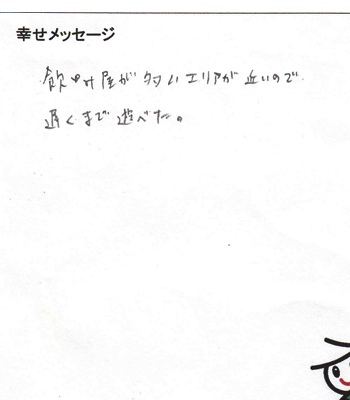 幸せメッセージ
飲み屋が多いエリアが近いので
遅くまで遊べた。